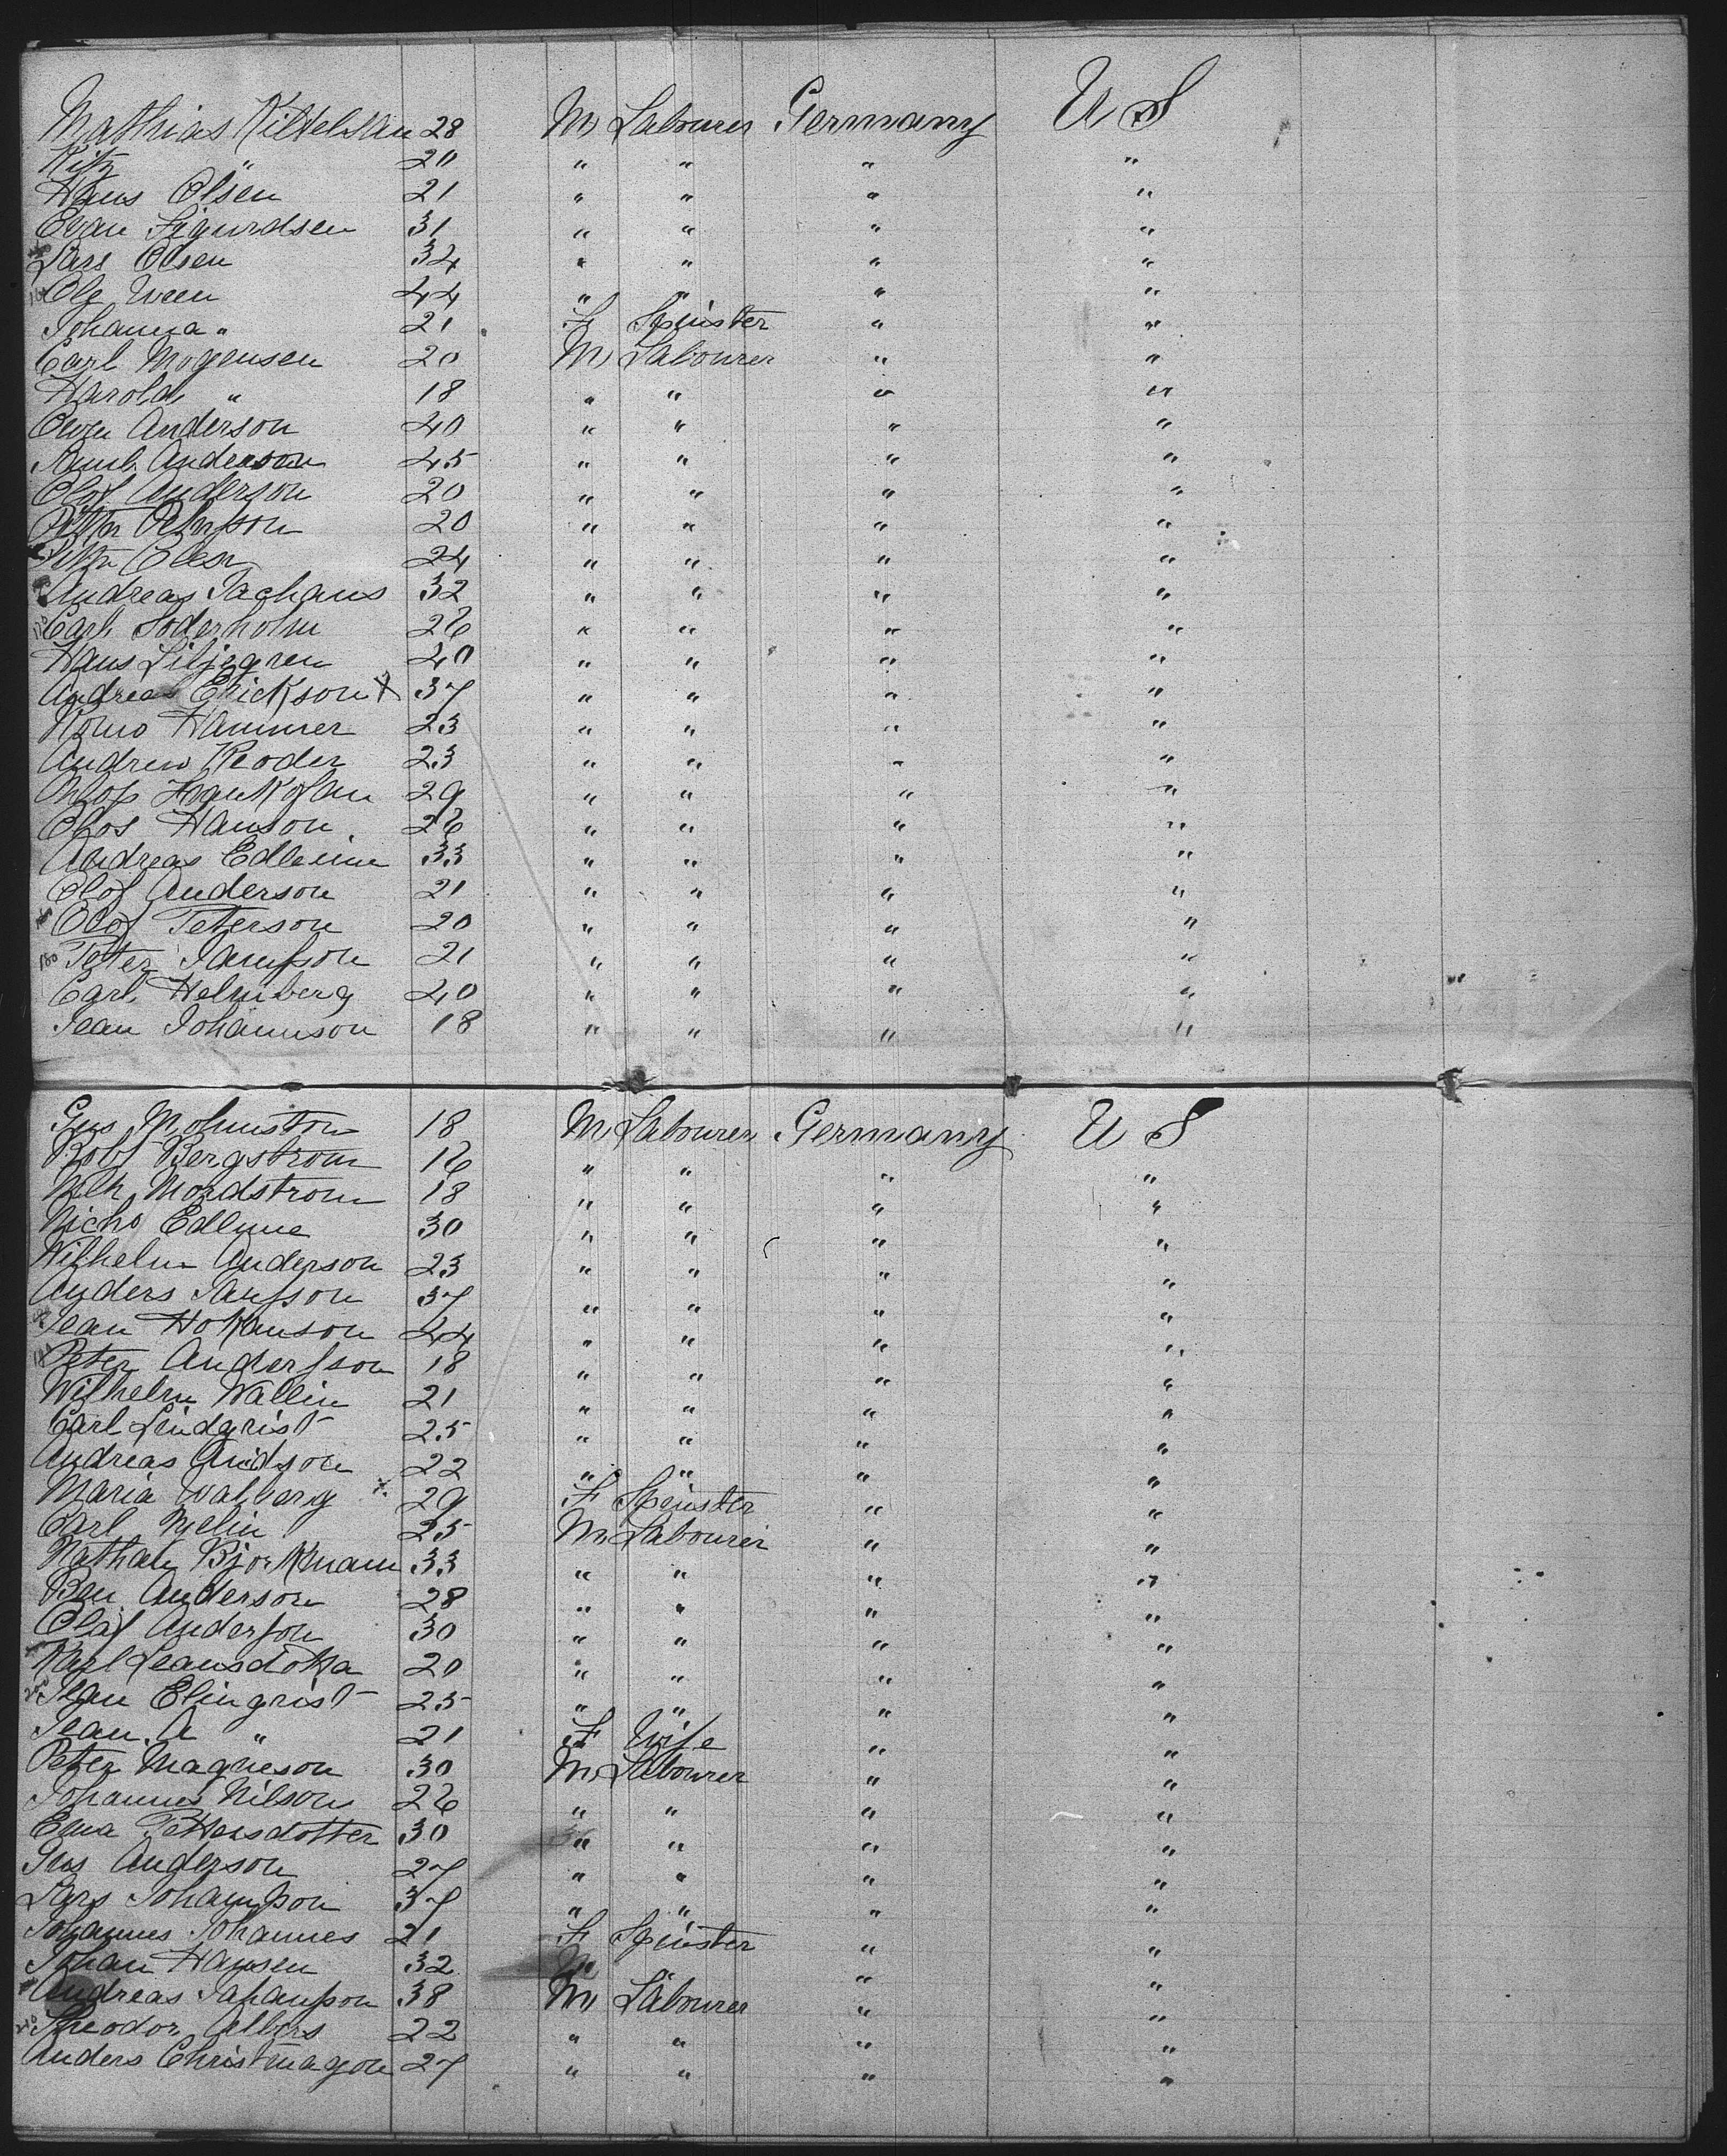 Mathias Kittelsen 28 M Labourer Germany U S
Fitz " 20 " " " "
Hans Olsen 21 " " " "
Evan Sigurdsen 31 " " " "
Lars Olsen 34 " " " "
Ole Ween 44 " " " "
Johanna " 21 F Spinster " "
Carl Mogensen 20 M Labourer " "
Harold " 18 " " " "
Owen Anderson 40 " " " "
Anderson 45 " " " "
Olof Anderson 20 " " " "
20 " " " "
24 " " " "
Andreas Sachaus 32 " " " "
Carl Soderholm 26 " " " "
Hans Liljegren 40 " " " "
Andreas Erickson X 37 " " " "
Hammer 23 " " " "
Andrew Reoder 23 " " " "
29 " " " "
Olos Hanson 26 " " " "
Andreas 33 " " " "
Olof Anderson 21 " " " "
Olof Peterson 20 " " " "
180 Peter 21 " " " "
Carl Helmberg 40 " " " "
Jean Johannson 18 " " " "
Gus 18 M Labourer Germany U S
Robt Bergstrom 16 " " " "
Mordstrom 18 " " " "
Nicho Edlune 30 " " " "
Wilhelm Anderson 23 " " " "
Anders Janfson 37 " " " "
Jean Hokanson 44 " " " "
Peter Andersson 18 " " " "
Wilhelm Wallin 21 " " " "
Carl Lindgrist 25 " " " "
Andreas 22 " " " "
Maria Walberg X 29 F Spinster " "
Carl 25 M Labourer " "
Nathan Bjorkmann 33 " " " "
Ben Anderson 28 " " " "
Olaf Anderson 30 " " " "
Karl 20 " " " "
Jean Elingrist 25 " " " "
Jean A " 21 F Wife " "
Peter Magneson 30 M Labourer " "
Johannes Nilson 26 " " " "
Ema Pettersdotter 30 " " " "
Anderson 27 " " " "
Lars Johannson 37 " " " "
Johannes Johannes 21 F Spinster " "
Johan Hansen 32 M " " "
Andreas 38 M Labourer " "
210 Theodor Albers 22 " " " "
Anders Christmagon 27 " " " "